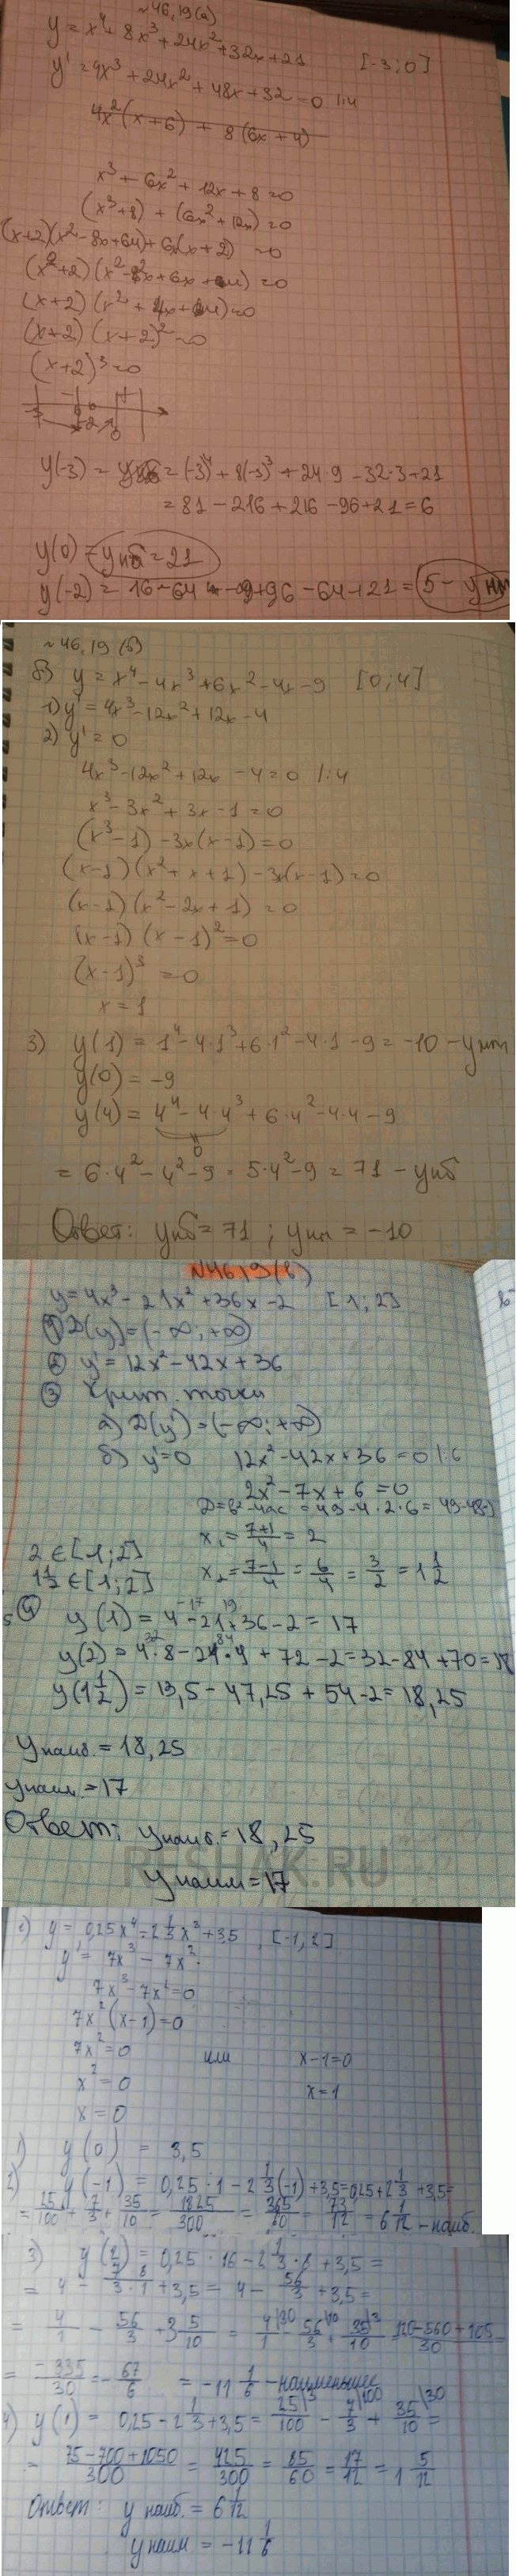 №46,19(а)
y = x⁴ + 8x³ + 24x² + 32x + 21 [-3; 0]
y' = 4x³ + 24x² + 48x + 32 = 0 |:4
4x²(x+6) + 8(6x+4)
x³ + 6x² + 12x + 8 = 0
(x³+8) + (6x²+12x) = 0
(x+2)(x²-8x+64)+6x(x+2) = 0
(x+2)(x² + 4x + 4) = 0
(x+2)(x+2)² = 0
(x+2)³ = 0
y(-3) = (-3)⁴ + 8(-3)³ + 24·9 - 32·3 + 21
= 81 - 216 + 216 - 96 + 21 = 6
y(0) = yнб = 21
y(-2) = 16 - 64 + 96 - 64 + 21 = 5 - yнм
№46,19(б)
б) y = x⁴ - 4x³ + 6x² - 4x - 9 [0; 4]
1) y' = 4x³ - 12x² + 12x - 4
2) y' = 0
4x³ - 12x² + 12x - 4 = 0 |:4
x³ - 3x² + 3x - 1 = 0
(x³-1) - 3x(x-1) = 0
(x-1)(x²+x+1) - 3x(x-1) = 0
(x-1)(x²-2x+1) = 0
(x-1)(x-1)² = 0
(x-1)³ = 0
x = 1
3) y(1) = 1⁴ - 4·1³ + 6·1² - 4·1 - 9 = -10 - yнм
y(0) = -9
y(4) = 4⁴ - 4·4³ + 6·4² - 4·4 - 9
0
= 6·4² - 4² - 9 = 5·4² - 9 = 71 - yнб
Ответ: yнб = 71; yнм = -10
№46.19(в)
y = 4x³ - 21x² + 36x - 2 [1; 2]
① D(y) = (-∞; +∞)
② y' = 12x² - 42x + 36
③ Крит. точки
а) D(y') = (-∞; +∞)
б) y' = 0 12x² - 42x + 36 = 0 |:6
2x² - 7x + 6 = 0
D = b² - 4ac = 49 - 4·2·6 = 49-48=1
x₁ = 7+1/4 = 2
2 ∈ [1; 2]
1½ ∈ [1; 2] x₂ = 7-1/4 = 6/4 = 3/2 = 1½
④ y(1) = 4 - 21 + 36 - 2 = 17
y(2) = 4·8 - 21·4 + 72 - 2 = 32 - 84 + 70 = 18
y(1½) = 13,5 - 47,25 + 54 - 2 = 18,25
yнаиб. = 18,25
yнаим. = 17
Ответ: yнаиб. = 18,25
RESHAK.RU
yнаим = 17
г) y = 0,25x⁴ - 2⅓x³ + 3,5, [-1, 2]
y' = 7x³ - 7x²
7x³ - 7x² = 0
7x²(x-1) = 0
7x² = 0 или x-1=0
x² = 0 x = 1
x = 0
1) y(0) = 3,5
2) y(-1) = 0,25·1 - 2⅓(-1) + 3,5 = 0,25 + 2⅓ + 3,5 =
= 25/100 + 7/3 + 35/10 = 1825/300 = 365/60 = 73/12 = 6 1/12 - наиб.
3) y(2) = 0,25·16 - 2⅓·8 + 3,5 =
= 4 - 7·8/3·1 + 3,5 = 4 - 56/3 + 3,5 =
= 4/1 - 56/3 + 3 5/10 = 4/1 - 56/3 + 35/10 = 120-560+105/30
= -335/30 = -67/6 = -11 1/6 - наименьшее
4) y(1) = 0,25 - 2⅓ + 3,5 = 25/100 - 7/3 + 35/10 =
= 75-700+1050/300 = 425/300 = 85/60 = 17/12 = 1 5/12
Ответ: y наиб. = 6 1/12
y наим. = -11 1/6